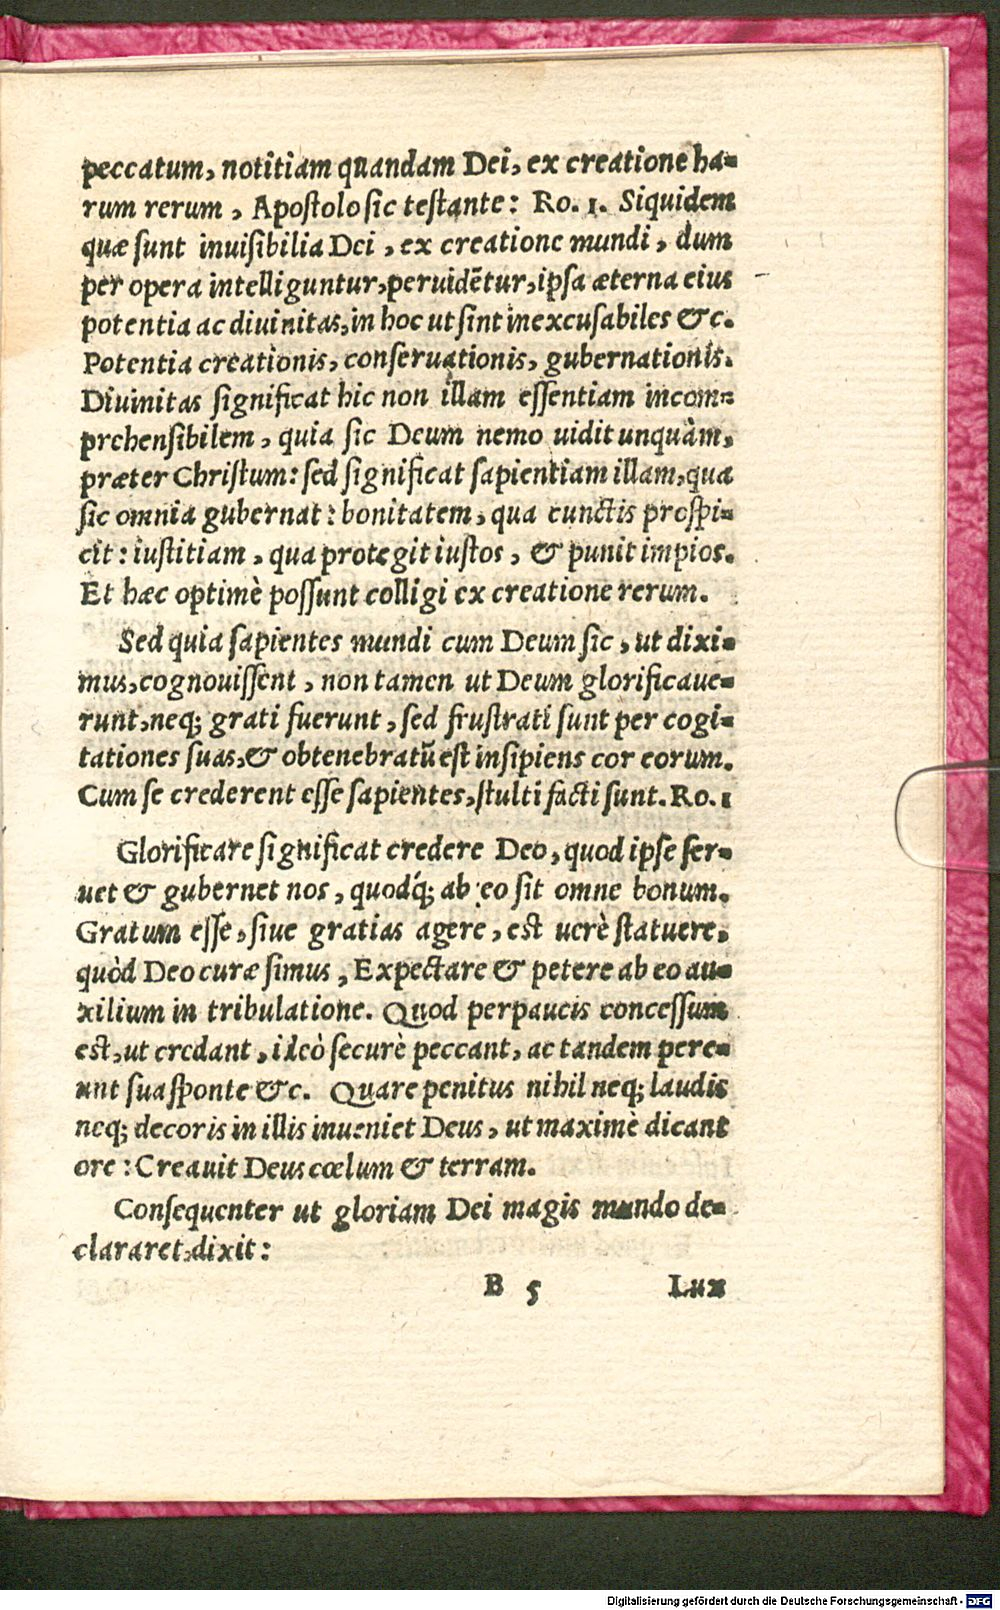 peccatum, notitiam quandam Dei, ex creatione ha-
rum rerum, Apostolo sic testante: Ro. 1. Siquidem
quæ sunt inuisibilia Dei, ex creatione mundi, dum
per opera intelliguntur, peruidẽtur, ipsa æterna eius
potentia ac diuinitas, in hoc ut sint inexcusabiles &c.
Potentia creationis, conseruationis, gubernationis.
Diuinitas significat hic non illam essentiam incom-
prehensibilem, quia sic Deum nemo uidit unquàm,
præter Christum: sed significat sapientiam illam, qua
sic omnia gubernat: bonitatem, qua cunctis prospi-
cit: iustitiam, qua protegit iustos, & punit impios.
Et hæc optimè possunt colligi ex creatione rerum.
Sed quia sapientes mundi cum Deum sic, ut dixi-
mus, cognouissent, non tamen ut Deum glorificaue-
runt, neq; grati fuerunt, sed frustrati sunt per cogi-
tationes suas, & obtenebratũ est insipiens cor eorum.
Cum se crederent esse sapientes, stulti facti sunt. Ro. 1
Glorificare significat credere Deo, quod ipse ser-
uet & gubernet nos, quodq́; ab eo sit omne bonum.
Gratum esse, siue gratias agere, est uerè statuere,
quòd Deo curæ simus, Expectare & petere ab eo au-
xilium in tribulatione. Quod perpaucis concessum
est, ut credant, ideò securè peccant, ac tandem pere-
unt sua sponte &c. Quare penitus nihil neq; laudis
neq; decoris in illis inueniet Deus, ut maximè dicant
ore: Creauit Deus cœlum & terram.
Consequenter ut gloriam Dei magis mundo de-
clararet, dixit:
B 5 Lux
Digitalisierung gefördert durch die Deutsche Forschungsgemeinschaft - DFG